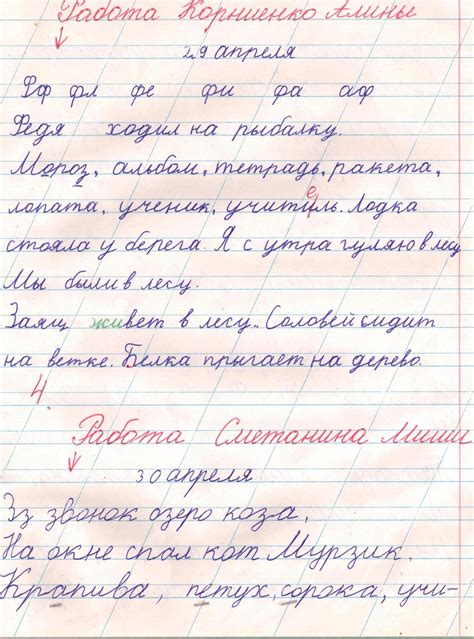 Работа Корниенко Алины
29 апреля
Фф фл фе фи фа аф
Федя ходил на рыбалку.
Мороз, альбом, тетрадь, ракета,
лопата, ученик, учитель. Лодка
стояла у берега. Я с утра гуляю в лесу
Мы были в лесу.
Заящ живет в лесу. Соловей сидит
на ветке. Белка прыгает на дерево.
4
Работа Сметанина Миши
30 апреля
Зз звонок озеро коза.
На окне спал кот Мурзик.
Крапива, петух, сорока, учи-